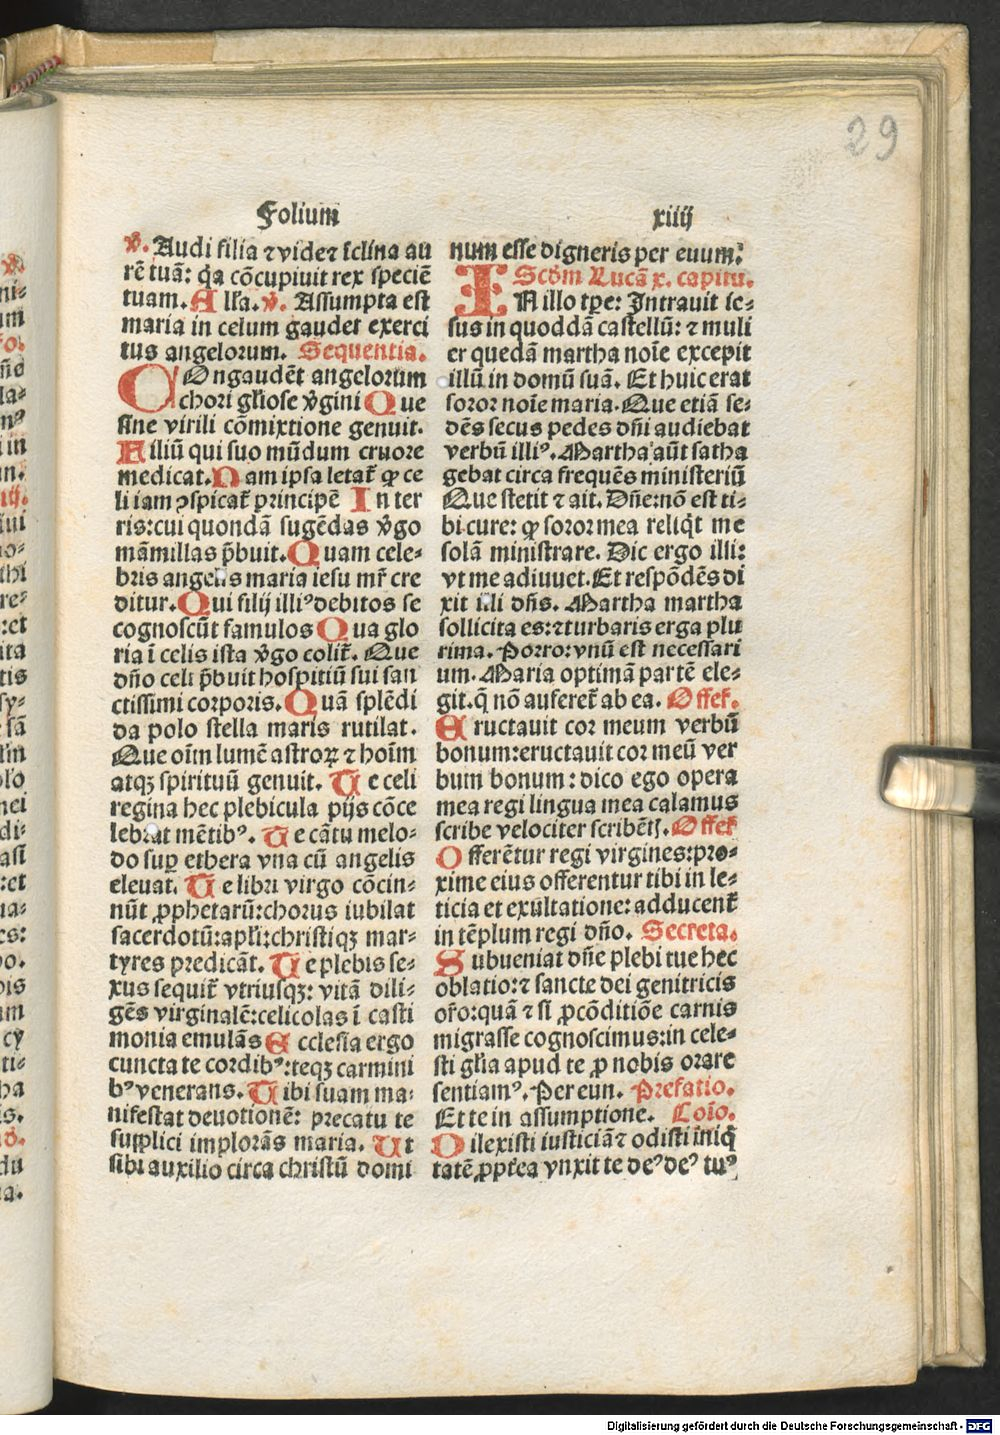 29
Folium xiiij
℣. Audi filia ⁊ vide ⁊ ĩclina au
rẽ tuã: q̃a cõcupiuit rex speciẽ
tuam. Alľa. ℣. Assumpta est
maria in celum gaudet exerci
tus angelorum. Sequentia.
COngaudẽt angelorum
chori gľiose ṽgini Que
sine virili cõmixtione genuit.
Filiũ qui suo mũdum cruore
medicat. Nam ipsa letať ꝙ ce
li iam ꝯspicať principẽ In ter
ris: cui quondã sugẽdas ṽgo
mãmillas p̃buit. Quam cele⸗
bris angelis maria iesu mr̃ cre
ditur. Qui filij illiꝰ debitos se
cognoscũt famulos Qua glo
ria ĩ celis ista ṽgo coliť. Que
dño celi p̃buit hospitiũ sui san
ctissimi corporis. Quã splẽdi
da polo stella maris rutilat.
Que oĩm lumẽ astroꝝ ⁊ hoĩm
atqꝫ spirituũ genuit. Te celi
regina hec plebicula pijs cõce
lebrat mẽtibꝰ. Te cãtu melo⸗
do suꝑ ethera vna cũ angelis
eleuat. Te libri virgo cõcin⸗
nũt ꝓphetarũ: chorus iubilat
sacerdotũ: apľi: christiqꝫ mar⸗
tyres predicãt. Te plebis se⸗
xus sequiť vtriusqꝫ: vitã dili⸗
gẽs virginalẽ: celicolas ĩ casti
monia emulãs Ecclesia ergo
cuncta te cordibꝰ: teqꝫ carmini
bꝰ venerans. Tibi suam ma⸗
nifestat deuotionẽ: precatu te
supplici implorãs maria. Ut
sibi auxilio circa christũ domi
num esse digneris per euum:
Scďm Lucã x. capitu.
IN illo tꝑe: Intrauit ie⸗
sus in quoddã castellũ: ⁊ muli
er quedã martha noĩe excepit
illũ in domũ suã. Et huic erat
soror noĩe maria. Que etiã se⸗
dẽs secus pedes dñi audiebat
verbũ illiꝰ. Martha aũt satha
gebat circa frequẽs ministeriũ
Que stetit ⁊ ait. Dñe: nõ est ti⸗
bi cure: ꝙ soror mea reliq̃t me
solã ministrare. Dic ergo illi:
vt me adiuuet. Et respõdẽs di
xit illi dñs. Martha martha
sollicita es: ⁊ turbaris erga plu
rima. Porro: vnũ est necessari
um. Maria optimã partẽ ele⸗
git. q̃ nõ aufereť ab ea. Offeř.
Eructauit cor meum verbũ
bonum: eructauit cor meũ ver
bum bonum: dico ego opera
mea regi lingua mea calamus
scribe velociter scribẽtꝭ. Offeř
Offerẽtur regi virgines: pro⸗
xime eius offerentur tibi in le⸗
ticia et exultatione: adducenť
in tẽplum regi dño. Secreta.
Subueniat dñe plebi tue hec
oblatio: ⁊ sancte dei genitricis
oŕo: quã ⁊ si ꝓcõditiõe carnis
migrasse cognoscimus: in cele⸗
sti gľia apud te ꝓ nobis orare
sentiamꝰ. Per eun. Prefatio.
Et te in assumptione. Coĩo.
Dilexisti iusticiã ⁊ odisti iniq̃
tatẽ ꝓpťea vnxit te deꝰ deꝰ tuꝰ
Digitalisierung gefördert durch die Deutsche Forschungsgemeinschaft - DFG